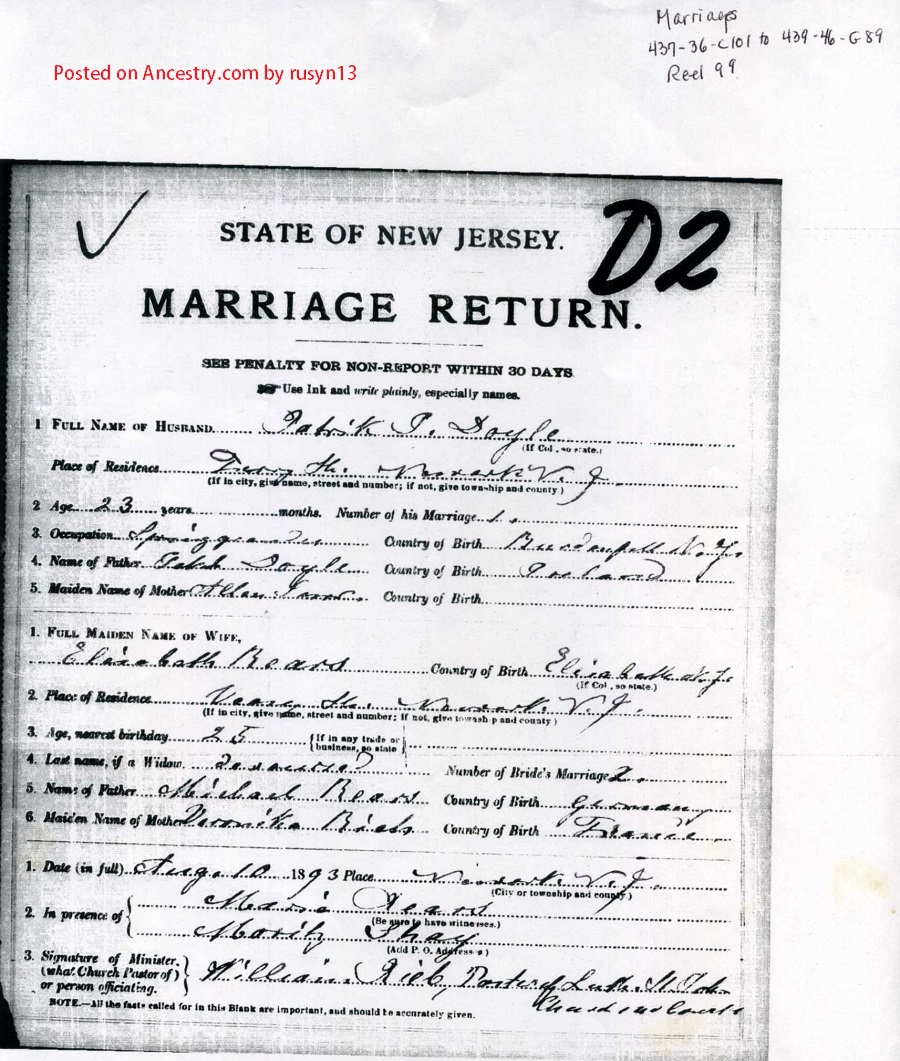 Marriages
437-36-C101 to 439-46-G89
Reel 99
Posted on Ancestry.com by rusyn13
D2
STATE OF NEW JERSEY.
MARRIAGE RETURN.
SEE PENALTY FOR NON-REPORT WITHIN 30 DAYS.
Use Ink and write plainly, especially names.
1 FULL NAME OF HUSBAND Patrik P. Doyle
(If Col., so state.)
Place of Residence Newark N. J.
(If in city, give name, street and number; if not, give township and county)
2 Age 23 years months. Number of his Marriage 1.
3. Occupation Country of Birth N. J.
4. Name of Father Doyle Country of Birth Ireland
5. Maiden Name of Mother Country of Birth
1. FULL MAIDEN NAME OF WIFE,
Elisabeth Rears Country of Birth Elisabeth N. J.
(If Col., so state.)
2. Place of Residence Newark N. J.
(If in city, give name, street and number; if not, give township and county)
3. Age, nearest birthday 25 {If in any trade or business, so state}
4. Last name, if a Widow Number of Bride's Marriage 2.
5. Name of Father Michael Rears Country of Birth Germany
6. Maiden Name of Mother Veronika Country of Birth France
1. Date (in full) Aug. 10 1893 Place Newark N. J.
(City or township and county)
2. In presence of { Maria Rears
(Be sure to have witnesses.)
Moritz
(Add P. O. Address)
3. Signature of Minister, (what Church Pastor of) or person officiating. } William Rieb, Pastor of Luth. St. Joh.
NOTE.—All the facts called for in this Blank are important, and should be accurately given.